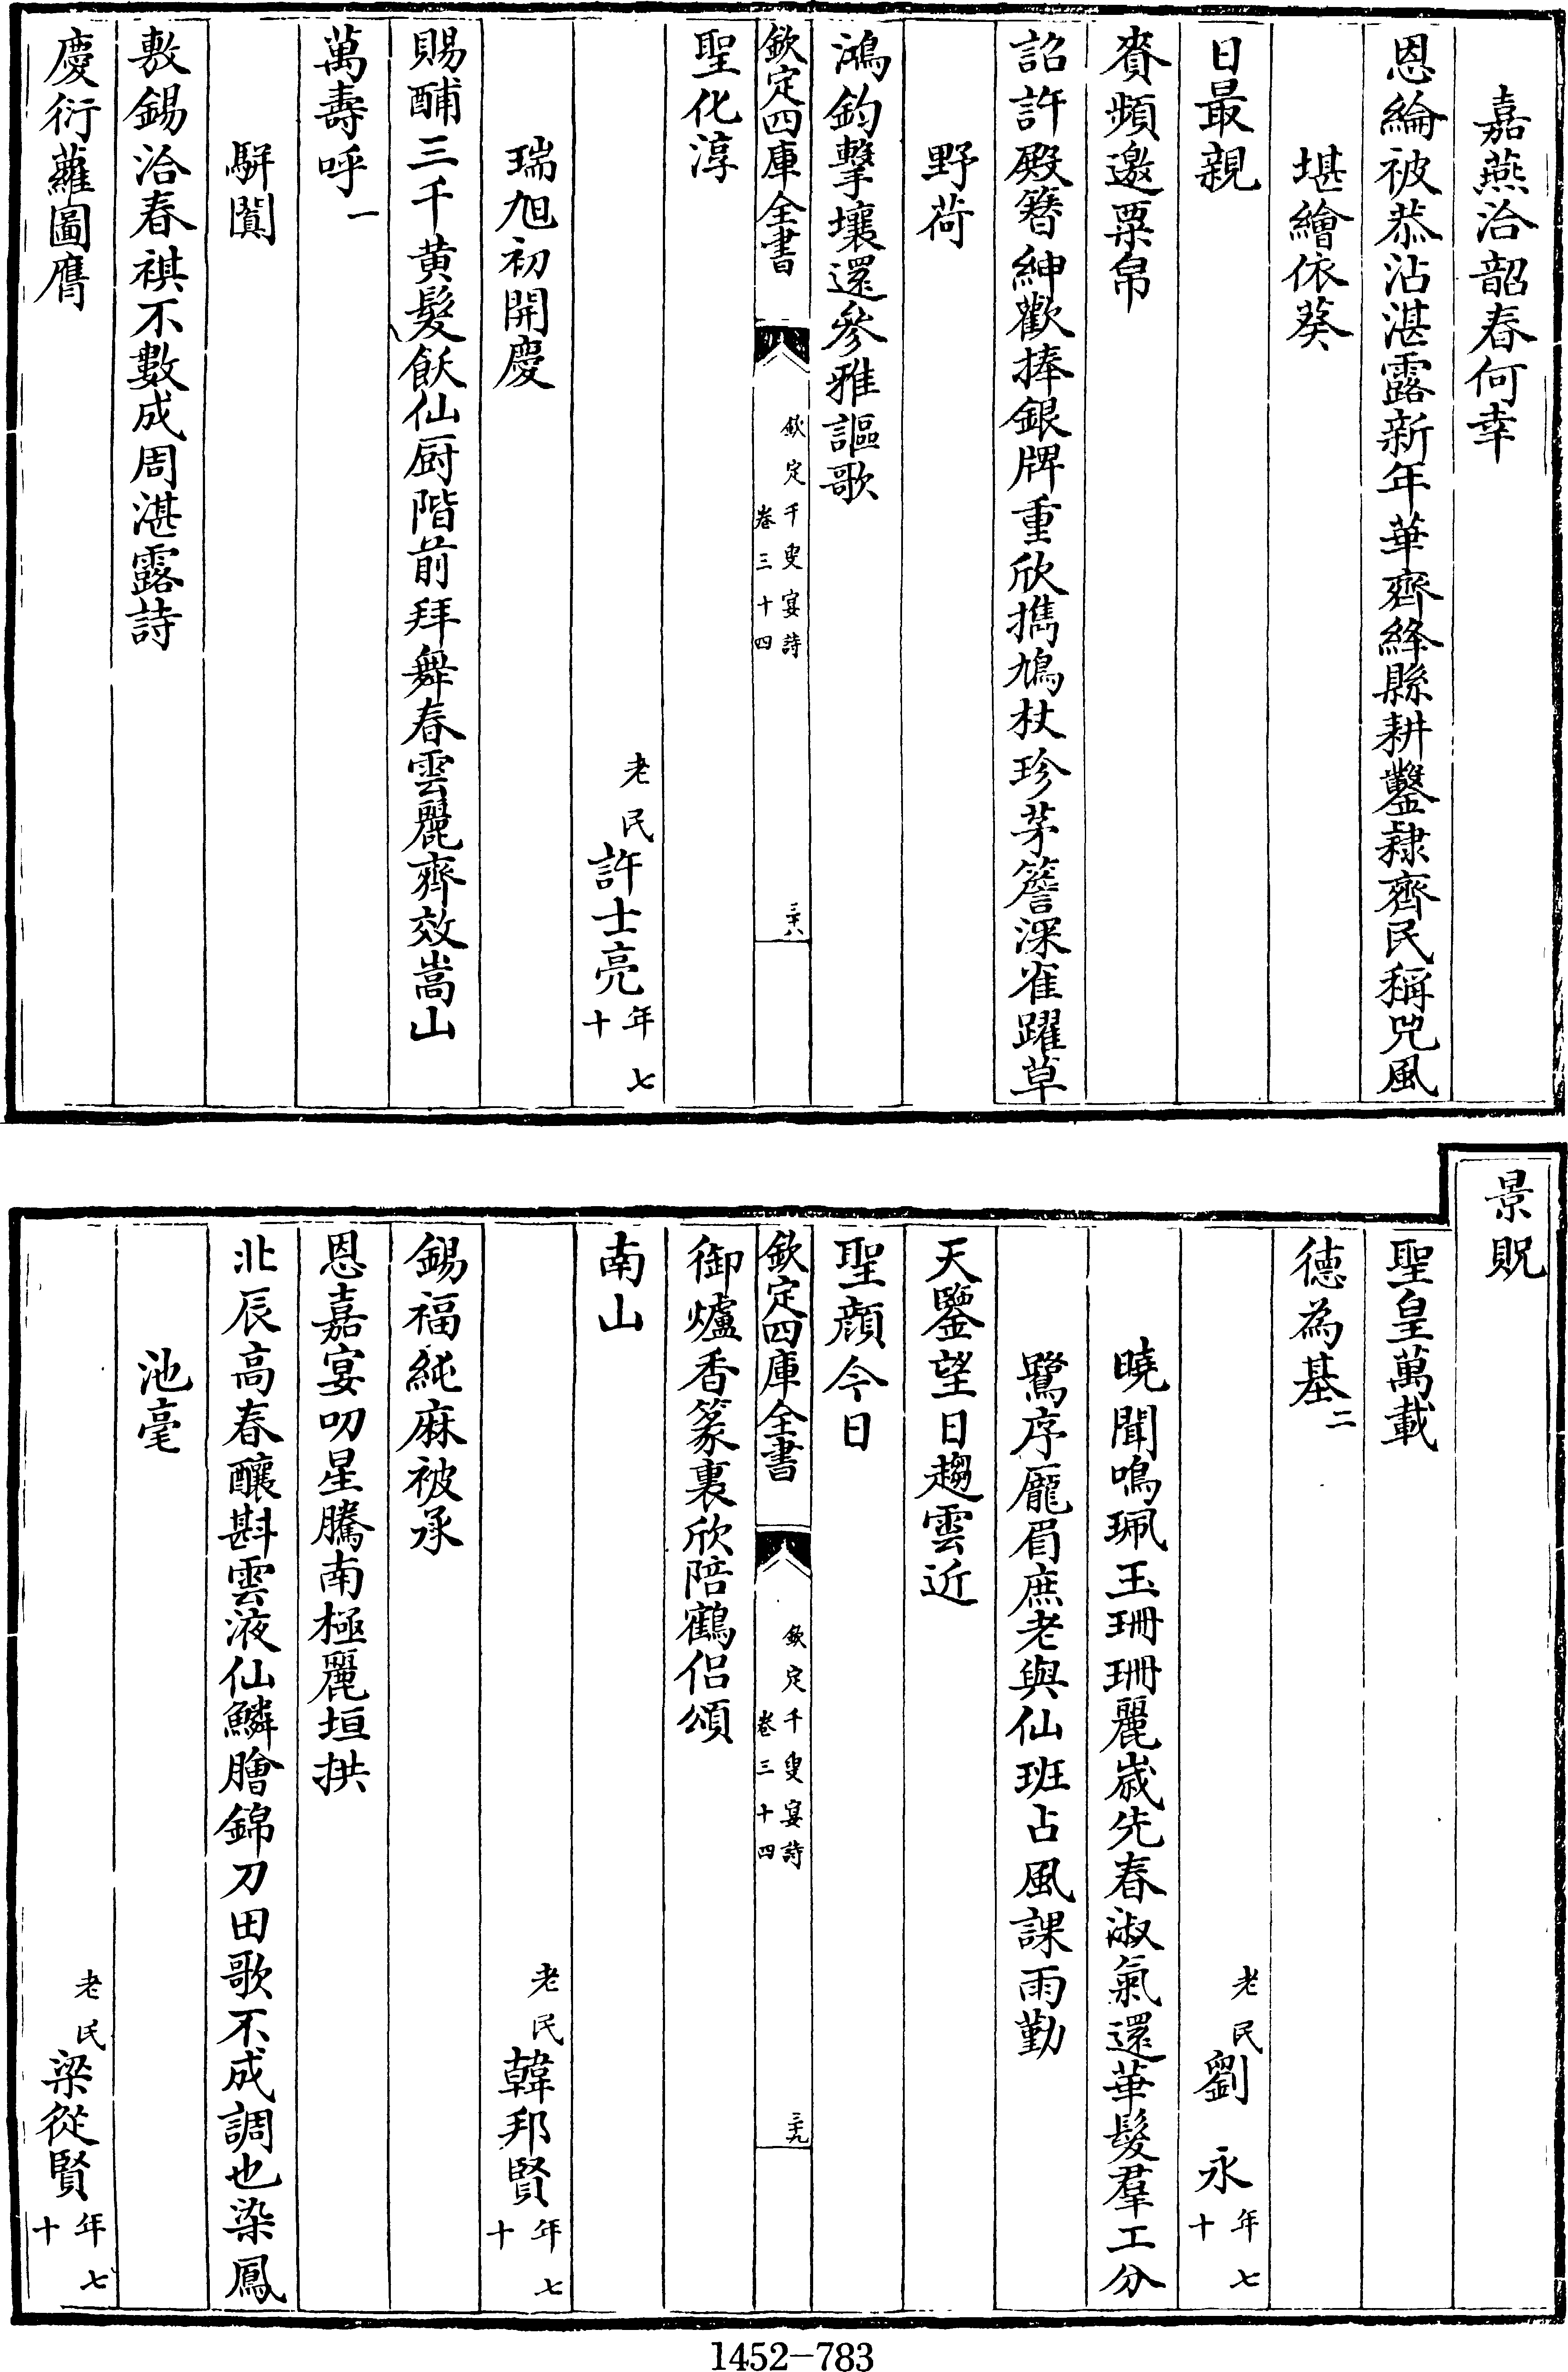 嘉燕洽韶春何幸
恩綸被恭沾湛露新年華齊絳縣耕鑿隸齊民稱兕風
堪繪依葵
日最親
賚頻邀粟帛
詔許殿簪紳歡捧銀牌重欣攜鳩杖珍茅簷深雀躍草
野荷
鴻鈞擊壤還參雅謳歌
欽定四庫全書
欽定千叟宴詩
卷三十四
三十八
聖化淳
老民許士亮年七十
瑞旭初開慶
賜酺三千黄髮飫仙厨階前拜舞春雲麗齊效嵩山
萬壽呼一
駢闐
敷錫洽春祺不數成周湛露詩
慶衍蘿圖膺
景貺
聖皇萬載
德為基二
老民劉永年七十
曉聞鳴珮玉珊珊麗歲先春淑氣還華髮羣工分
鷺序龐眉庶老與仙班占風課雨勤
天鑒望日趨雲近
聖顔今日
欽定四庫全書
欽定千叟宴詩
卷三十四
三十九
御爐香篆裏欣陪鶴侣頌
南山
老民韓邦賢年七十
錫福純麻被承
恩嘉宴叨星騰南極麗垣拱
北辰高春釀斟雲液仙鱗膾錦刀田歌不成調也染鳳
池毫
老民梁從賢年七十
1452-783